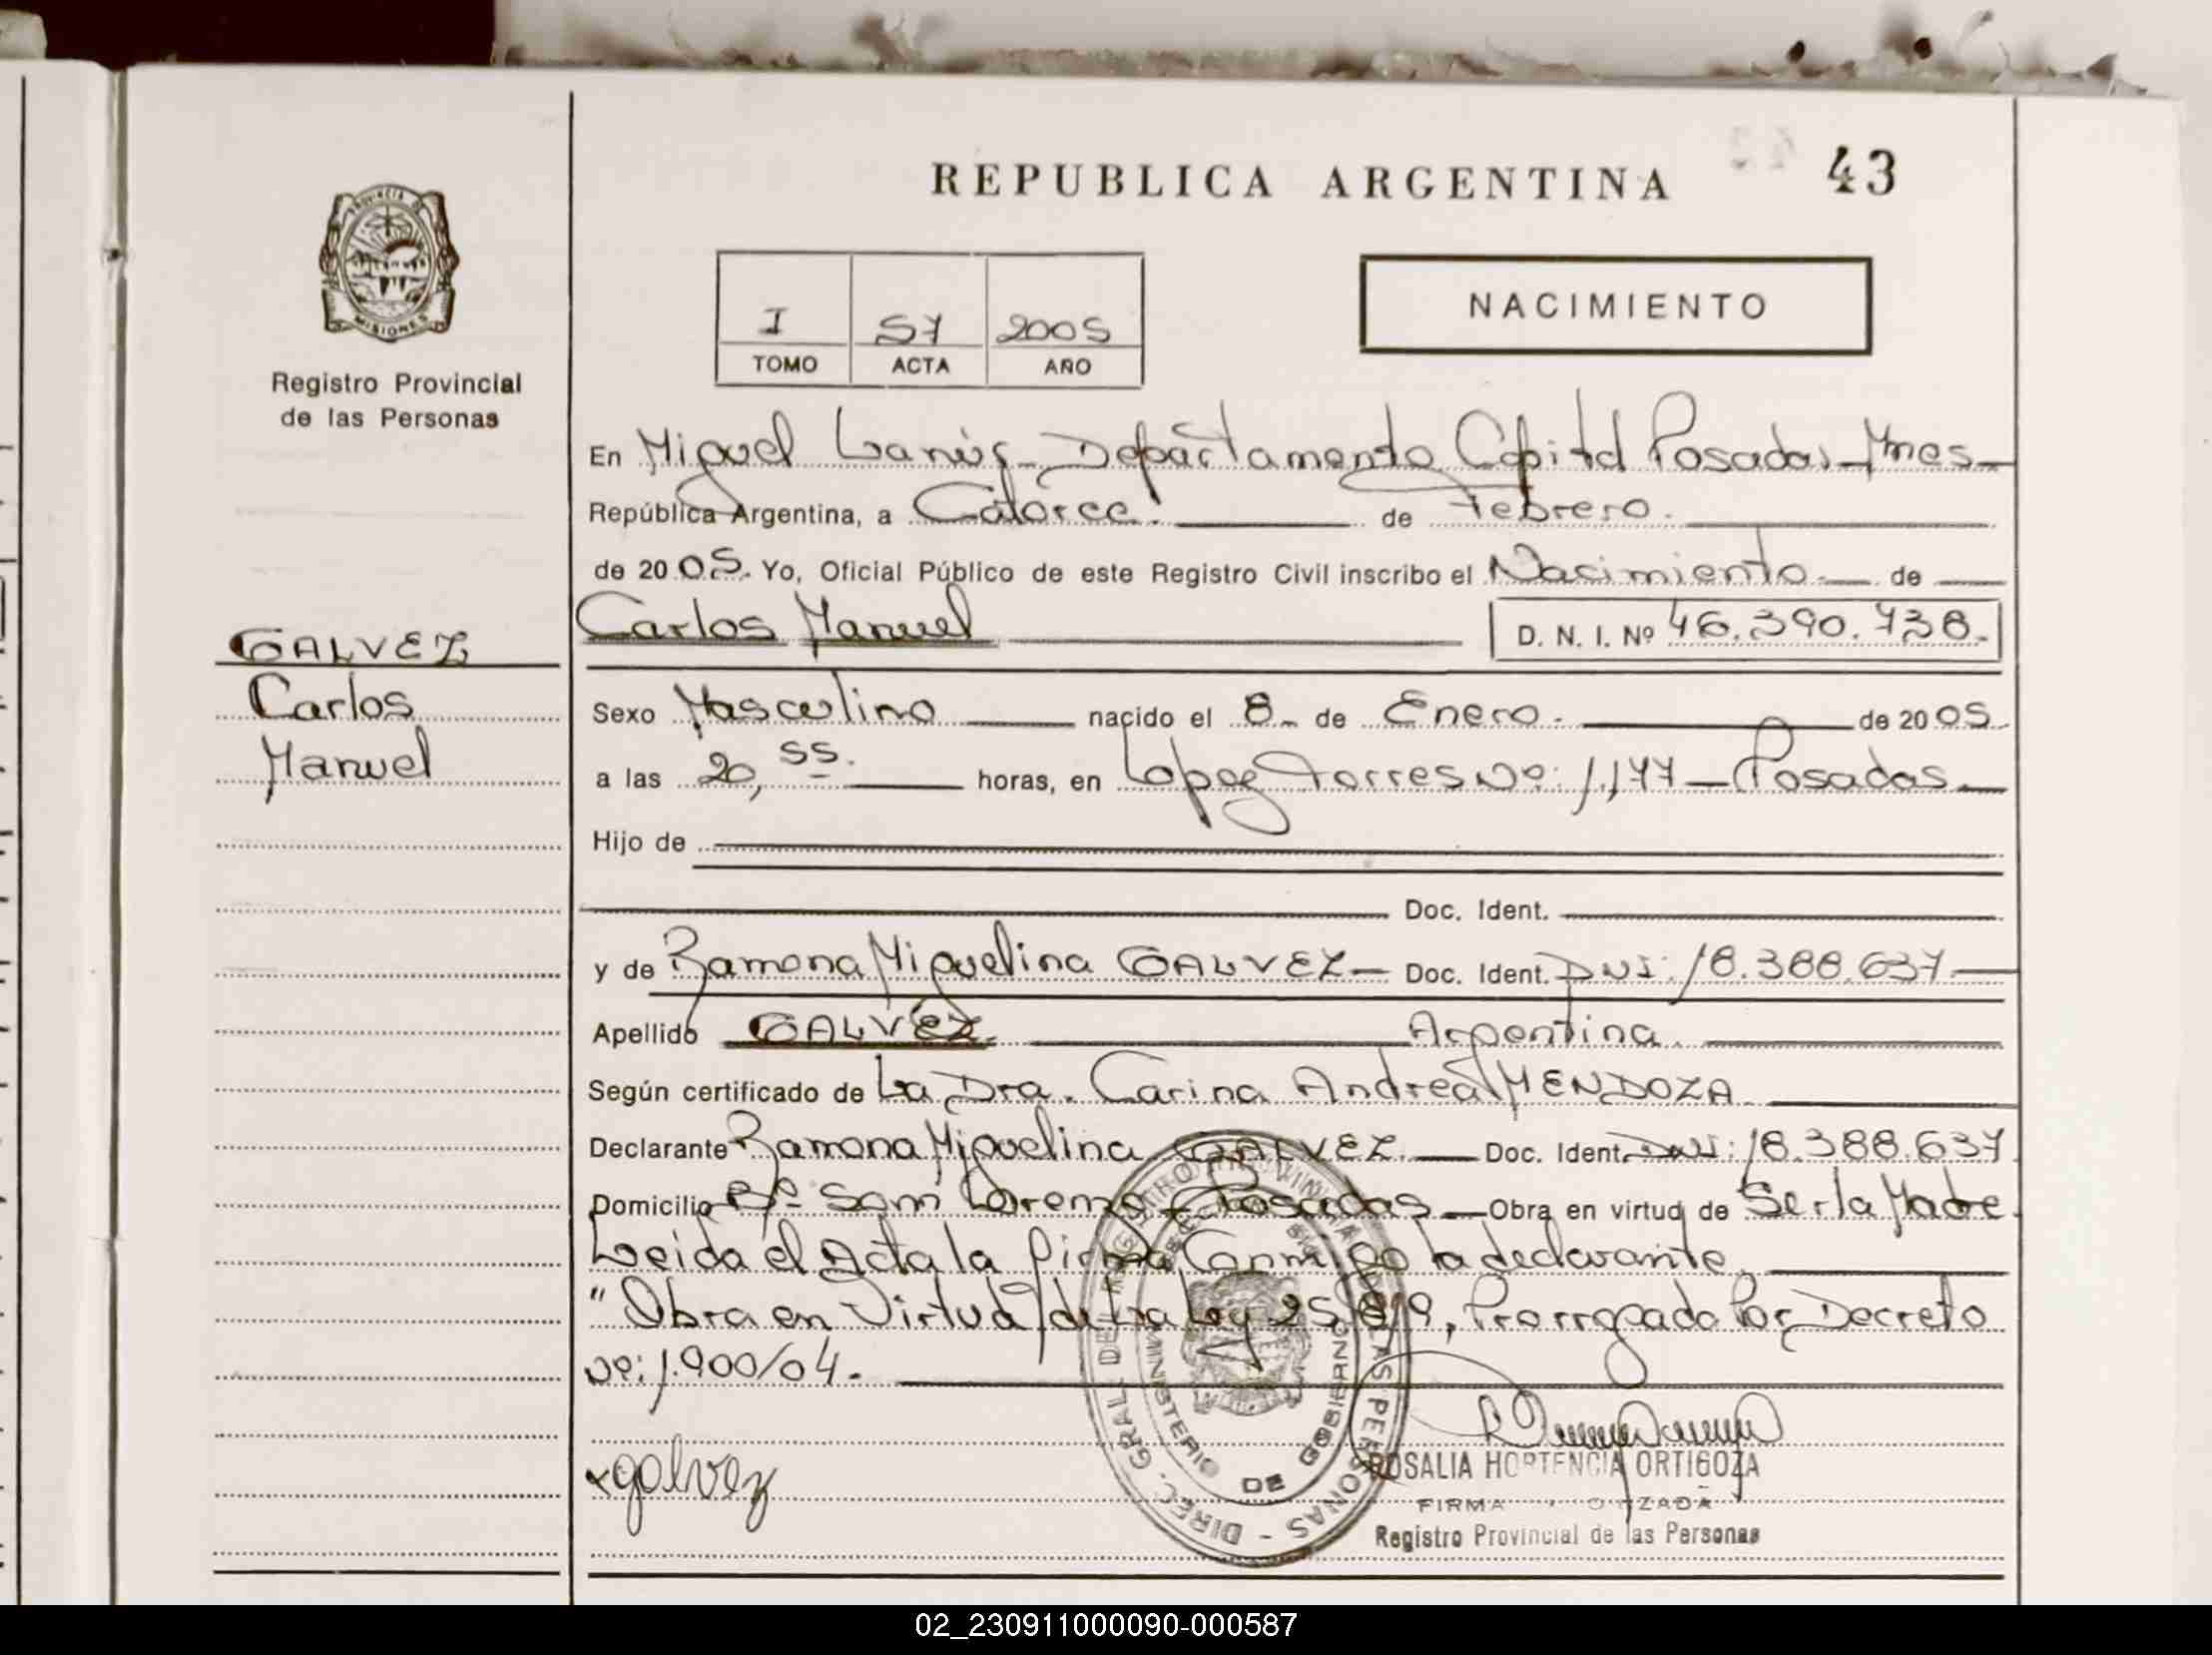 REPUBLICA ARGENTINA 43
PROVINCIA DE
MISIONES
Registro Provincial
de las Personas
NACIMIENTO
I 57 2005
TOMO ACTA AÑO
En Miguel Lanús - Departamento Capital Posadas - Mnes -
República Argentina, a Catorce. de Febrero.
de 2005. Yo, Oficial Público de este Registro Civil inscribo el Nacimiento de
Carlos Manuel D. N. I. Nº 46.390.738.
GALVEZ
Carlos
Manuel
Sexo Masculino nacido el 8 - de Enero - de 2005.
a las 20,55. horas, en Lopez Torres Nº: 1.177 - Posadas
Hijo de
Doc. Ident.
y de Ramona Miguelina GALVEZ - Doc. Ident. DNI: 18.388.637
Apellido GALVEZ. Argentina.
Según certificado de La Dra. Carina Andrea MENDOZA
Declarante Ramona Miguelina GALVEZ. Doc. Ident. DNI: 18.388.637
Domicilio Bº San Lorenzo - Posadas - Obra en virtud de Ser la Madre
Leida el Acta la firma Conmigo la declarante.
"Obra en Virtud de La Ley 25.819, Prorrogado Por Decreto
Nº: 1.900/04.
DIREC. GRAL. DEL REGISTRO PROVINCIAL DE LAS PERSONAS
MINISTERIO DE GOBIERNO
x galvez
ROSALIA HORTENCIA ORTIGOZA
FIRMA AUTORIZADA
Registro Provincial de las Personas
02_230911000090-000587